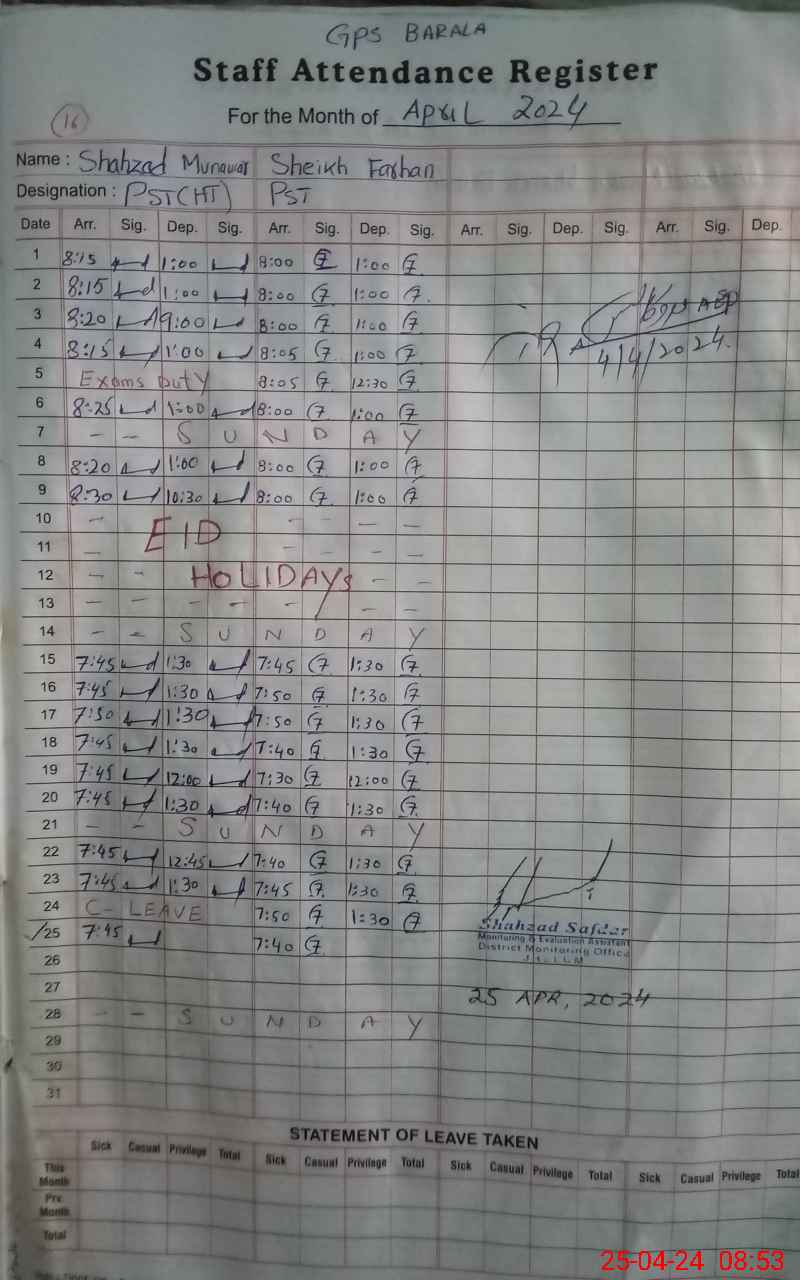 GPS BARALA
Staff Attendance Register
16
For the Month of April 2024
Name : Shahzad Munawar Sheikh Farhan
Designation : PST(HT) PST
Date Arr. Sig. Dep. Sig. Arr. Sig. Dep. Sig. Arr. Sig. Dep. Sig. Arr. Sig. Dep.
1 8:15 1:00 8:00 1:00
2 8:15 1:00 8:00 1:00
3 8:20 9:00 8:00 1:00
4 8:15 1:00 8:05 1:00
4/4/2024.
5 Exams Duty 8:05 12:30
6 8:25 1:00 8:00 1:00
7 - - S U N D A Y
8 8:20 1:00 8:00 1:00
9 8:30 10:30 8:00 1:00
10 - - - - -
11 EID
12 HOLIDAYS
13 - - - - - - -
14 - - S U N D A Y
15 7:45 1:30 7:45 1:30
16 7:45 1:30 7:50 1:30
17 7:50 1:30 7:50 1:30
18 7:45 1:30 7:40 1:30
19 7:45 12:00 7:30 12:00
20 7:45 1:30 7:40 1:30
21 - - S U N D A Y
22 7:45 12:45 7:40 1:30
23 7:45 1:30 7:45 1:30
24 C- LEAVE 7:50 1:30
25 7:45 7:40
Shahzad Safdar
Monitoring & Evaluation Assistant
District Monitoring Office
26
27
25 APR, 2024
28 - - S U N D A Y
29
30
31
STATEMENT OF LEAVE TAKEN
Sick Casual Privilege Total Sick Casual Privilege Total Sick Casual Privilege Total Sick Casual Privilege Total
This Month
Prv. Month
Total
25-04-24 08:53